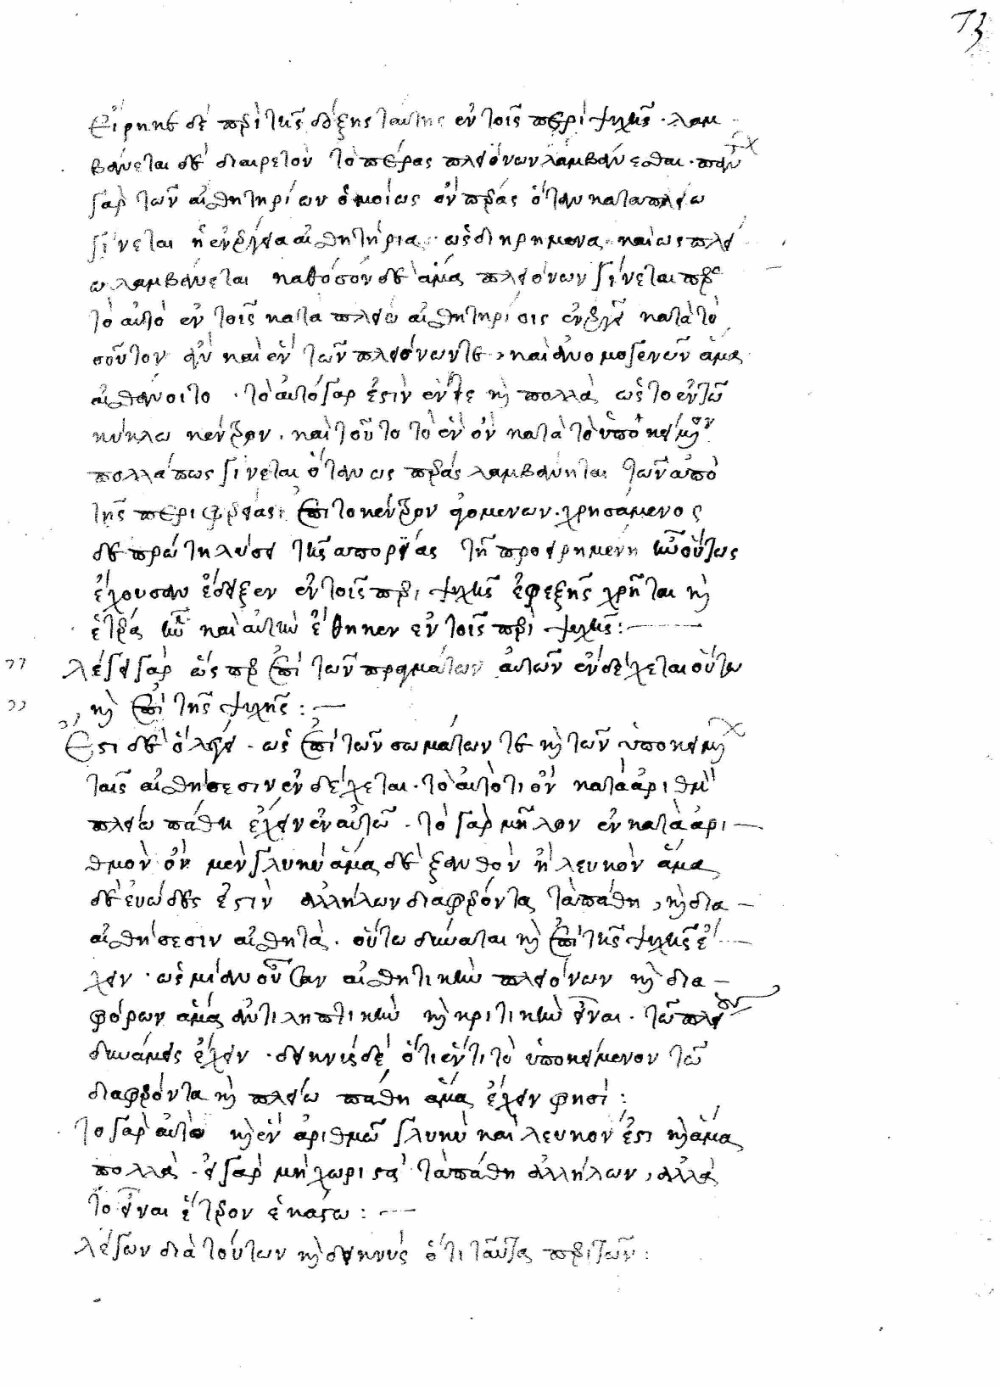 73
εἴρηκε δὲ περὶ τῆς δόξης ταύτης ἐν τοῖς περὶ ψυχῆς· λαμ
βάνεται δὲ διαιρετὸν τὸ πέρας πλειόνων λαμβάνεσθαι· πάν
γὰρ τῶν αἰσθητηρίων ὁμοίως ὂν πέρας ὅταν κατὰ πλείω
γίνεται ἡ ἐνέργεια αἰσθητήρια· ὡς διῃρημένα καὶ ὡς πλεί
ω λαμβάνεται καθόσον δὲ ἅμα πλειόνων γίνεται πρὸς
τὸ αὐτὸ ἐν τοῖς κατὰ πλείω αἰσθητηρίοις ἐνεργεῖ κατὰ το
σοῦτον ἂν καὶ ἓν τῶν πλειόνων τε, καὶ ἀνομογενῶν ἅμα
αἰσθάνοιτο· τὸ αὐτὸ γάρ ἐστιν ἕν τε καὶ πολλὰ ὡς τὸ ἐν τῶ
κύκλω κέντρον· καὶ τοῦτο τὸ ἓν ὂν κατὰ τὸ ὑποκείμενον
πολλά πως γίνεται ὅταν ὡς πέρας λαμβάνηται τῶν ἀπὸ
τῆς περιφερείας ἐπὶ τὸ κέντρον ἀγομένων· χρησάμενος
δὲ πρώτη λύσει τῆς ἀπορίας τῇ προειρημένη ἣν οὕτως
ἔχουσαν ἔδειξεν ἐν τοῖς περὶ ψυχῆς ἐφεξῆς χρῆται καὶ
ἑτέρα ἣν καὶ αὐτὴν ἔθηκεν ἐν τοῖς περὶ ψυχῆς:
λέγει γὰρ ὥσπερ ἐπὶ τῶν πραγμάτων αὐτῶν ἐνδέχεται οὕτω
καὶ ἐπὶ τῆς ψυχῆς:
ἔστι δὲ ὃ λέγει· ὡς ἐπὶ τῶν σωμάτων τε καὶ τῶν ὑποκειμένων
ταῖς αἰσθήσεσιν ἐνδέχεται· τὸ αὐτό τι ὂν κατὰ ἀριθμὸν
πλείω πάθη ἔχειν ἐν αὑτῶ· τὸ γὰρ μῆλον ἓν κατὰ ἀρι
θμὸν ὂν μὲν γλυκὺ ἅμα δὲ ξανθὸν ἢ λευκὸν ἅμα
δὲ εὐῶδες ἐστὶν ἀλλήλων διαφέροντα τὰ πάθη, καὶ δια
αἰσθήσεσιν αἰσθητὰ· οὕτω δύναται καὶ ἐπὶ τῆς ψυχῆς ἔ
χειν· ὡς μίαν οὖσαν αἰσθητικὴν πλειόνων καὶ δια
φόρων ἅμα ἀντιληπτικὴν καὶ κριτικὴν εἶναι· τῶ πλείους
δυνάμεις ἔχειν· δείκνυσι δὲ ὅτι ἕν τι τὸ ὑποκείμενον τῶ
διαφέροντα καὶ πλείω πάθη ἅμα ἔχειν φησὶ:
τὸ γὰρ αὐτὸ καὶ ἓν ἀριθμῶ γλυκὺ καὶ λευκόν ἐστι καὶ ἅμα
πολλὰ· εἰ γὰρ μὴ χωριστὰ τὰ πάθη ἀλλήλων, ἀλλὰ
τὸ εἶναι ἕτερον ἑκάστω:
λέγων διὰ τούτων καὶ δεικνὺς ὅτι ταῦτα περὶ τῶν: